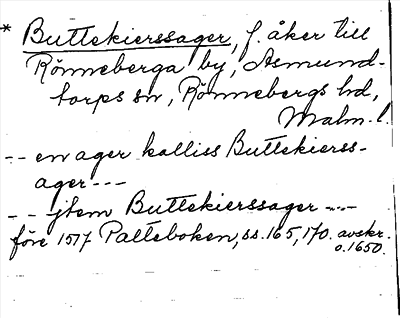 * Buttekierssager, f. åker till
Rönneberga by, Asmund-
torps sn, Rönnebergs hd,
Malm. l.
-- en ager kalliss Buttekierss-
ager ---
-- jtem Buttekierssager ---
före 1577 Palteboken, ss. 165, 170. avskr.
o. 1650.